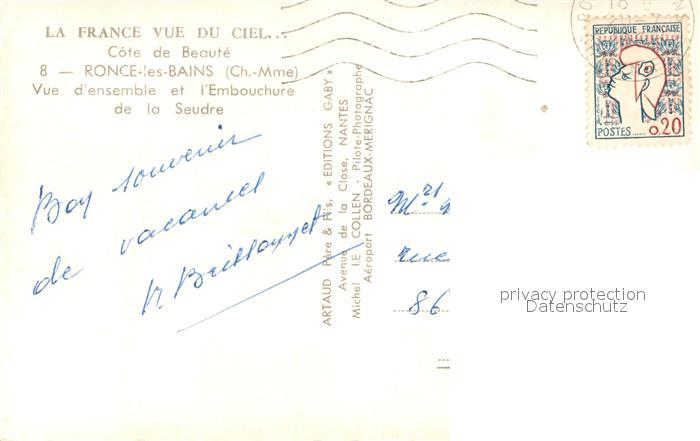 LA FRANCE VUE DU CIEL...
Côte de Beauté
8 — RONCE-les-BAINS (Ch.-Mme)
Vue d'ensemble et l'Embouchure
de la Seudre
Bon souvenir
de vacances
ARTAUD Père & Fils, « EDITIONS GABY »
Avenue de la Close, NANTES
Michel LE COLLEN - Pilote-Photographe
Aéroport BORDEAUX-MERIGNAC
REPUBLIQUE FRANÇAISE
POSTES 0,20
rue
86
privacy protection
Datenschutz